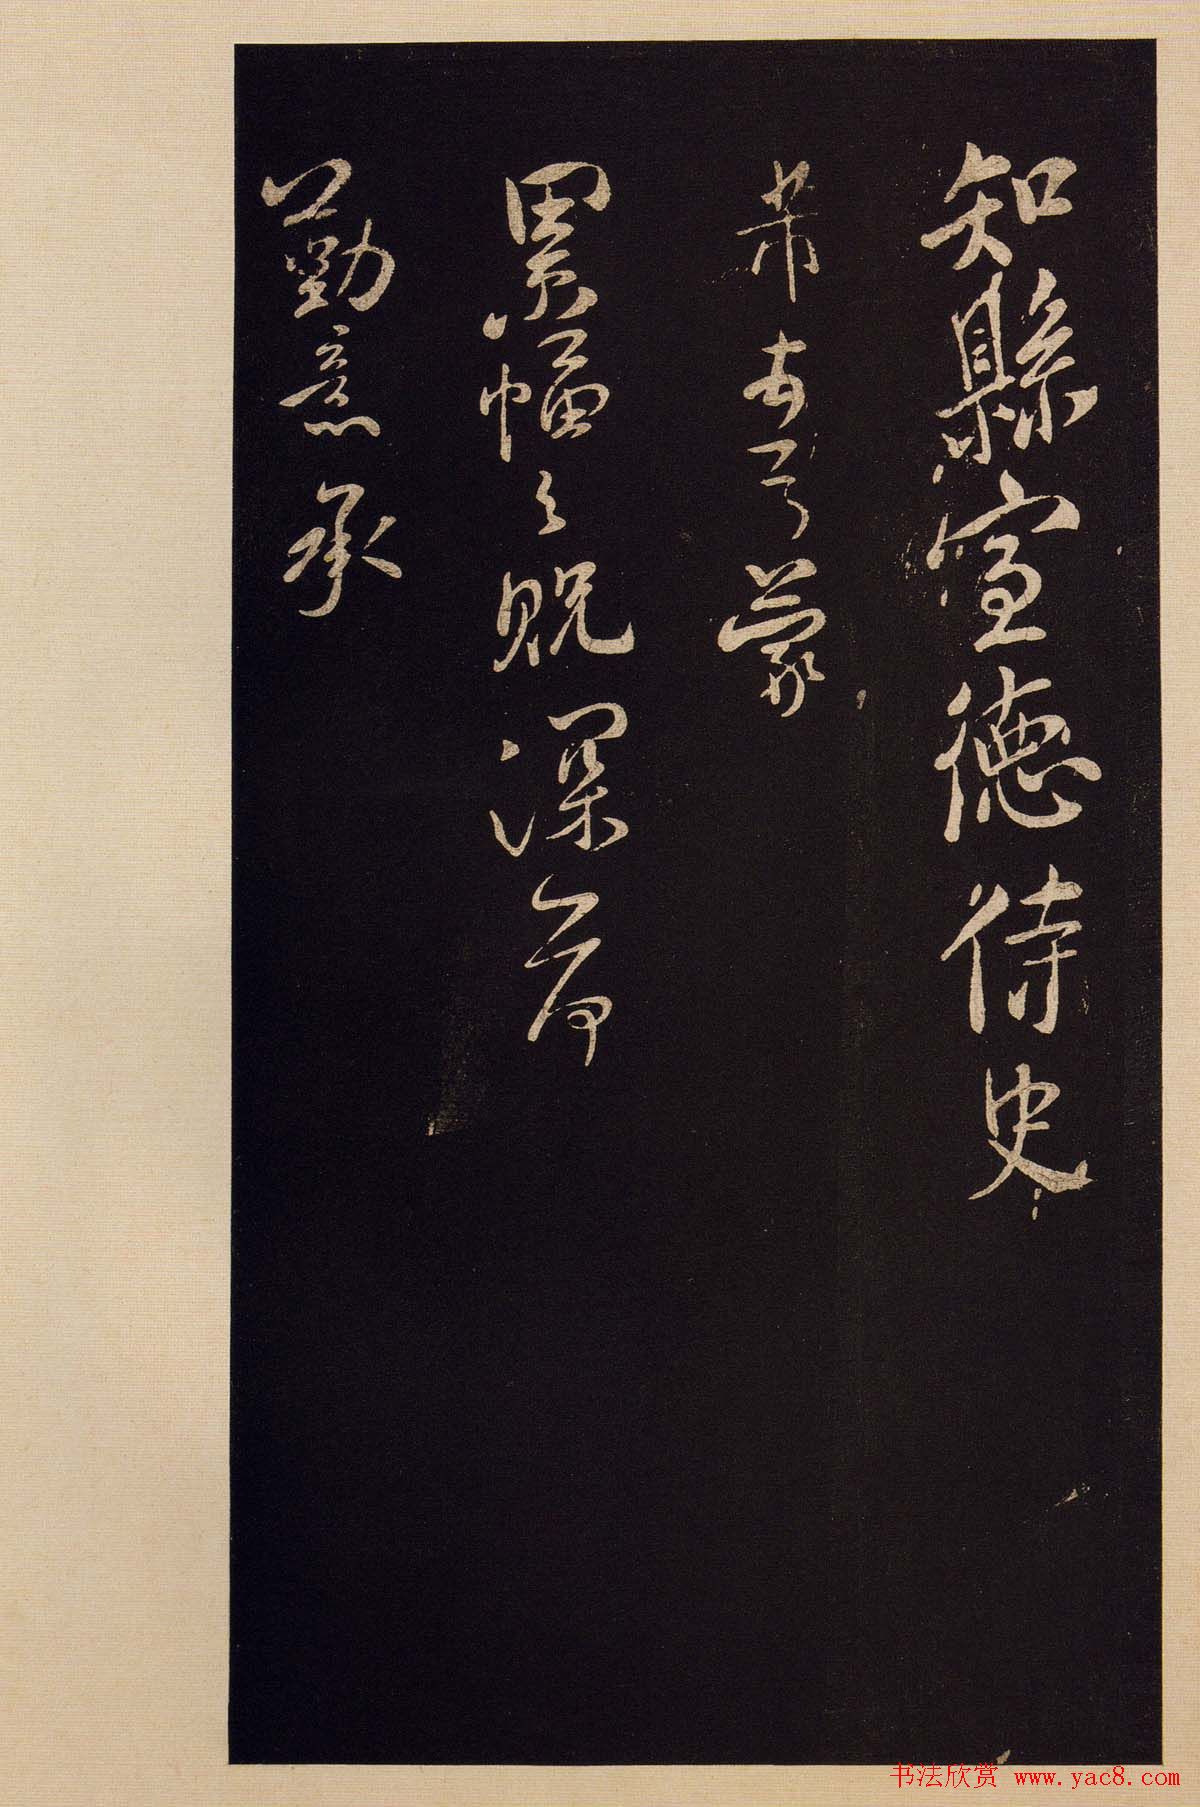 知縣宣德侍史
芾 蒙
累幅之貺深荷
勤意承
书法欣赏 www.yac8.com